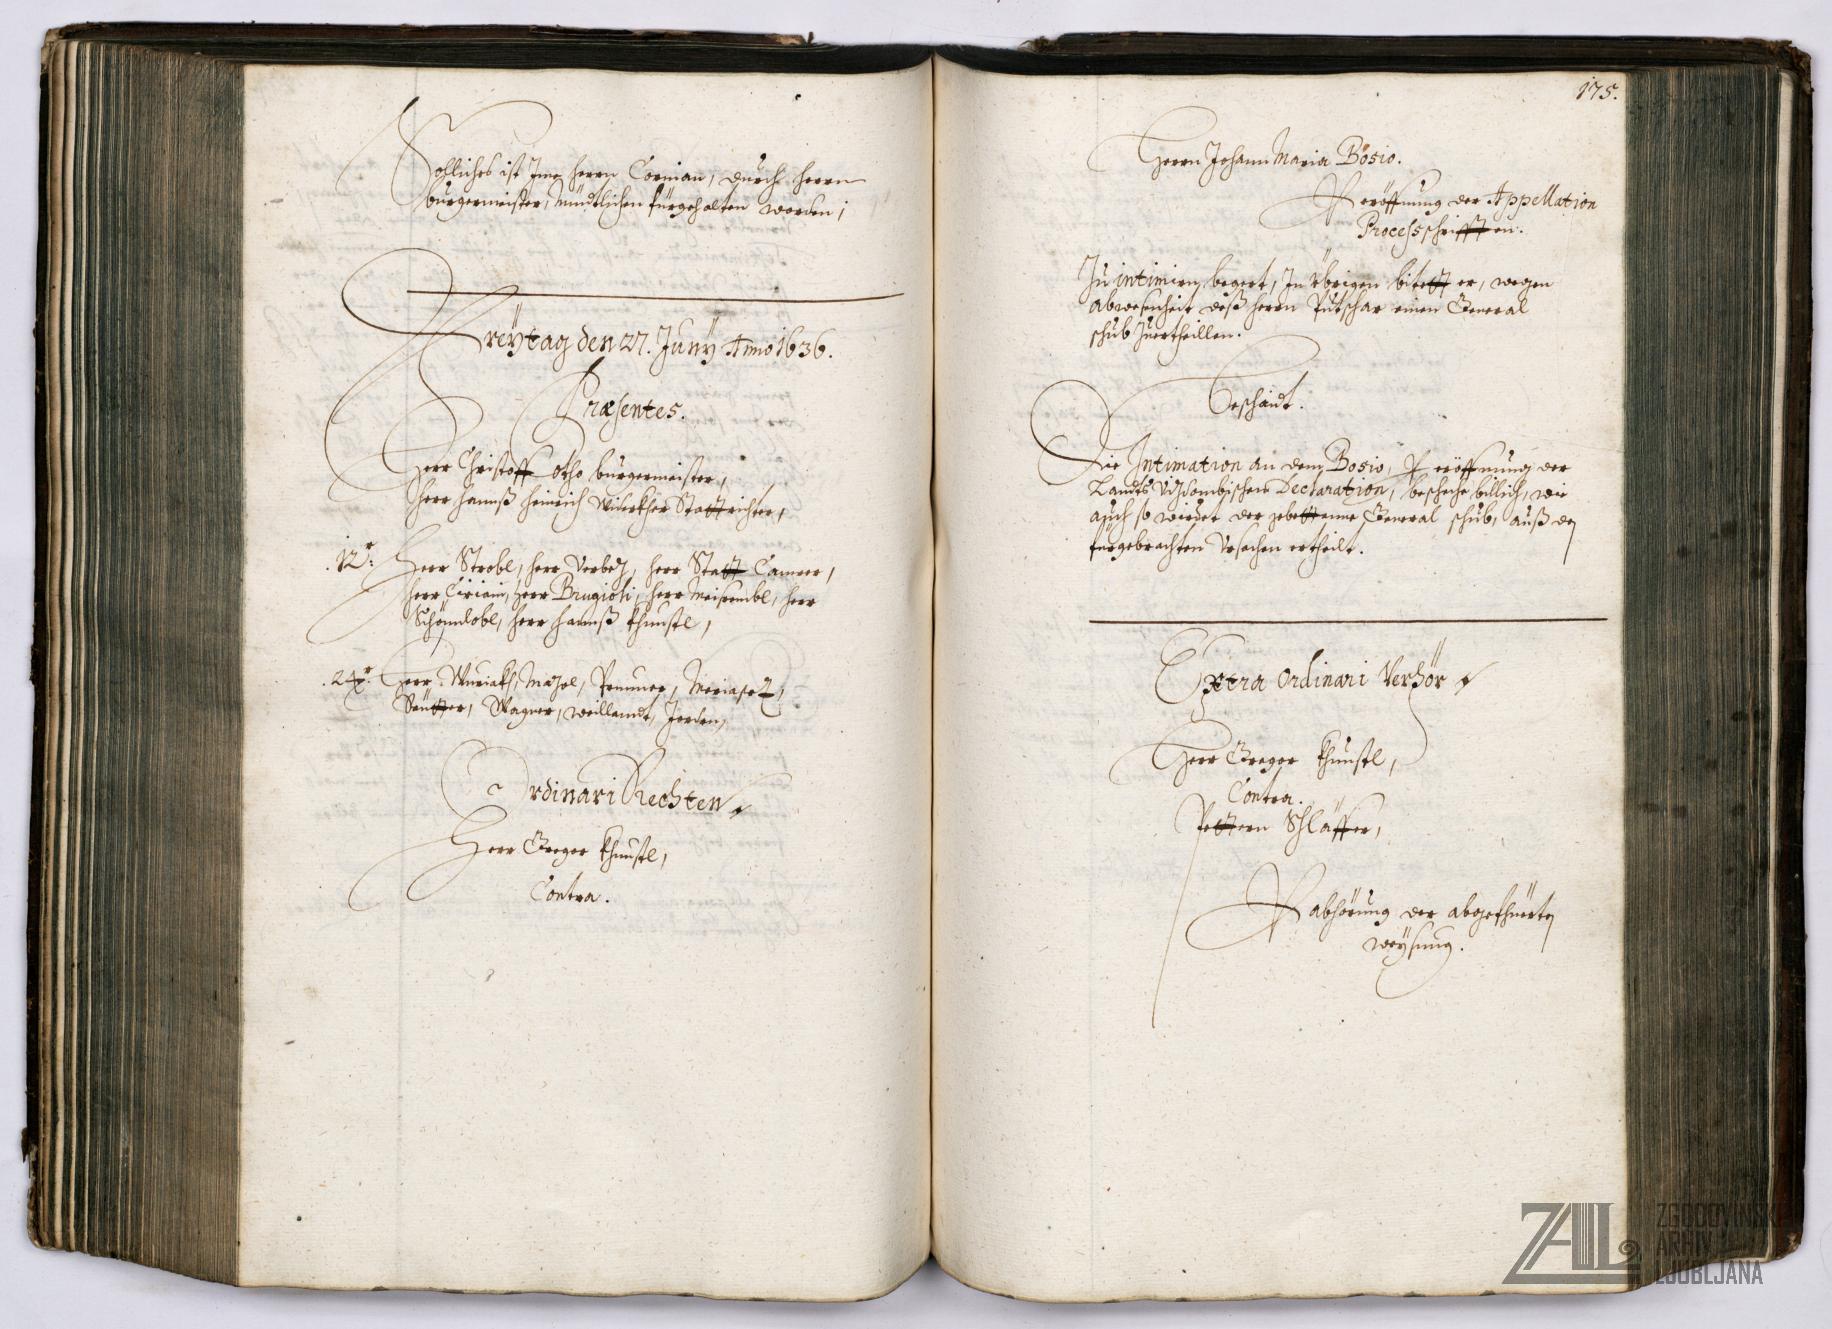 Solliches ist Ime herrn Cornian, durch herrn
burgermeister, mündtlichen fürgehalten worden,
Freÿtag den 27. Junÿ Anno 1636.
Præsentes.
Herr Christoff Otho burgermeister,
herr Hannß Heinrich Stattrichter,
.12.r Herr Strobl, herr Verbez, herr Statt Camrer,
herr Ciriani, herr Brugioti, herr herr
Schönlobl, herr Hannß Khunstl,
.24.r Herr Wuriakh, Prunner,
Sautter, Wagner, Weillandt, Jorden,
Ordinari Rechten
Herr Gregor Khunstl,
Contra.
175.
Herrn Johann Maria Bosio.
P eröffnung der Appellation
Processschrifften.
Zu intimirn begert, In übrigen bitett er, wegen
abwesenheit deß herrn Putschar einen General
schub Zuertheillen.
Beschaidt.
Die Intimation an dem Bosio, P eröffnung der
Landts Vizdombischen Declaration, beschehe billich, wie
auch so wirdet der gebettenne General schub, auß den
fürgebrachten Vrsachen ertheilt.
Extra Ordinari Verhör
Herr Gregor Khunstl,
Contra.
Pettern Schläffer,
P abhörung der abgefhuerten
weÿsung.
ZAL
ZGODOVINSKI
ARHIV
LJUBLJANA